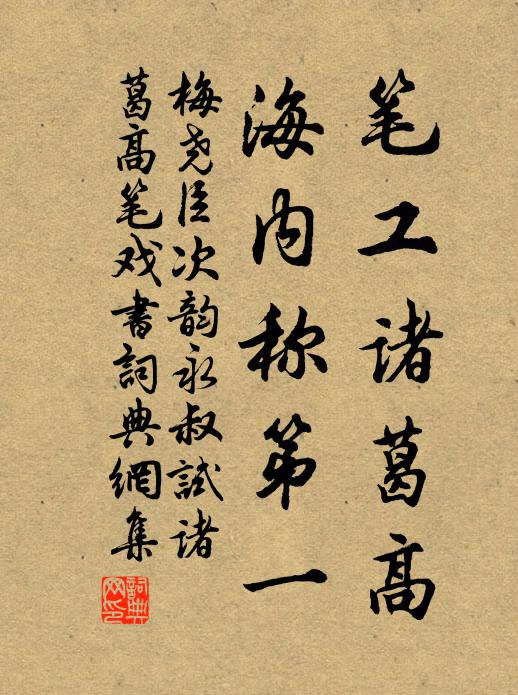 笔工诸葛高
海内称第一
梅尧臣次韵永叔試诸
葛高笔戏書詞典網集
詞典网印